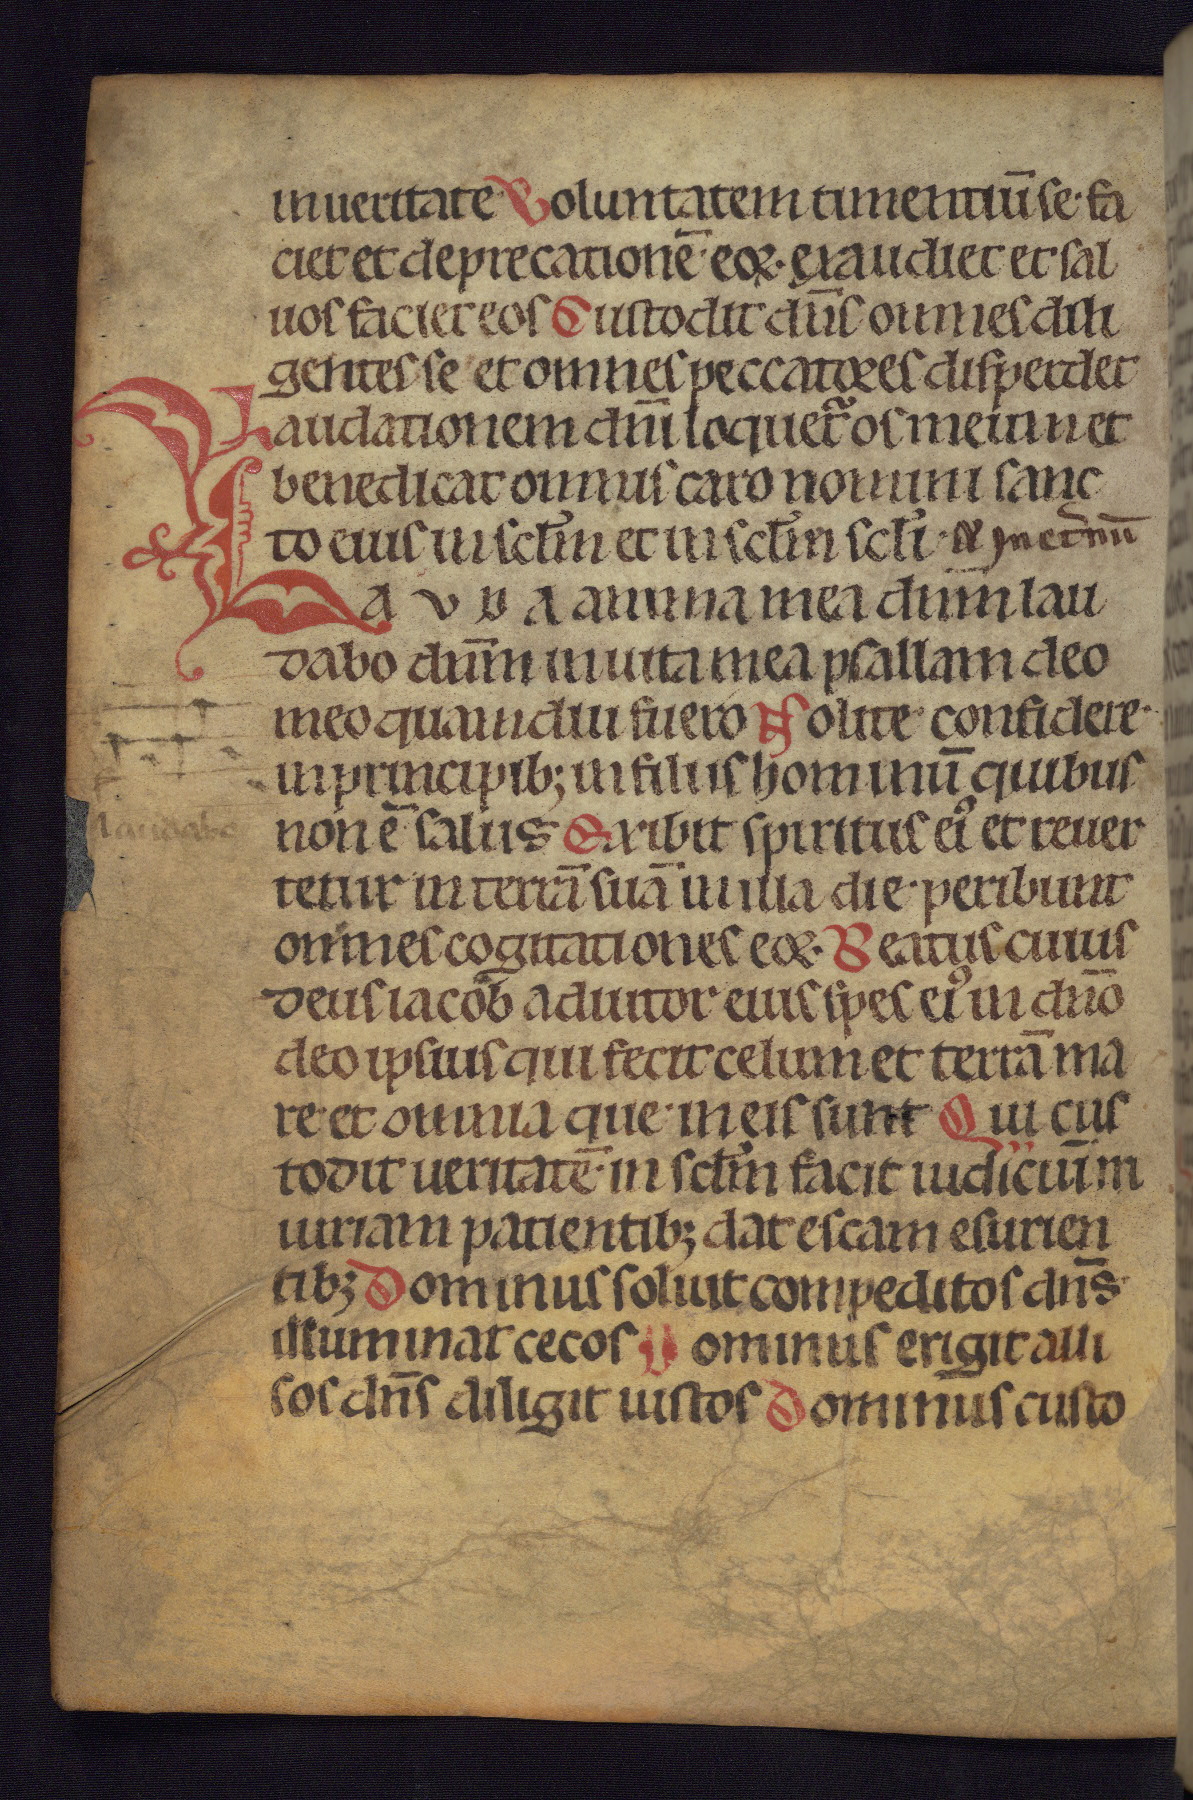 in ueritate Voluntatem timentiū se fa
ciet et deprecationē eoꝝ exaudiet et sal
uos faciet eos Custodit dn̄s omnes dili
gentes se et omnes peccatores disperdet
Laudationem dn̄i loquet᷑ os meum et
benedicat omnis caro nomini sanc
to eius in sc̄lm et in sc̄lm sc̄li · & in et̄nū
LAVDA anima mea dn̄m lau
dabo dn̄m in uita mea psallam deo
meo quamdiu fuero Nolite confidere
in principib; in filiis hominū quibus
non ē salus Exibit spiritus eiꝰ et reuer
laudabo
tetur in terrā suā in illa die peribunt
omnes cogitationes eoꝝ Beatus cuius
deus iacob adiutor eius spes eiꝰ in dn̄o
deo ipsius qui fecit celum et terrā ma
re et omnia que in eis sunt Qui cus
todit ueritatē in sc̄lm facit iudiciū in
iuriam patientib; dat escam esurien
tib; Dominus soluit compeditos dn̄s
illuminat cecos Dominus erigit alli
sos dn̄s diligit iustos Dominus custo